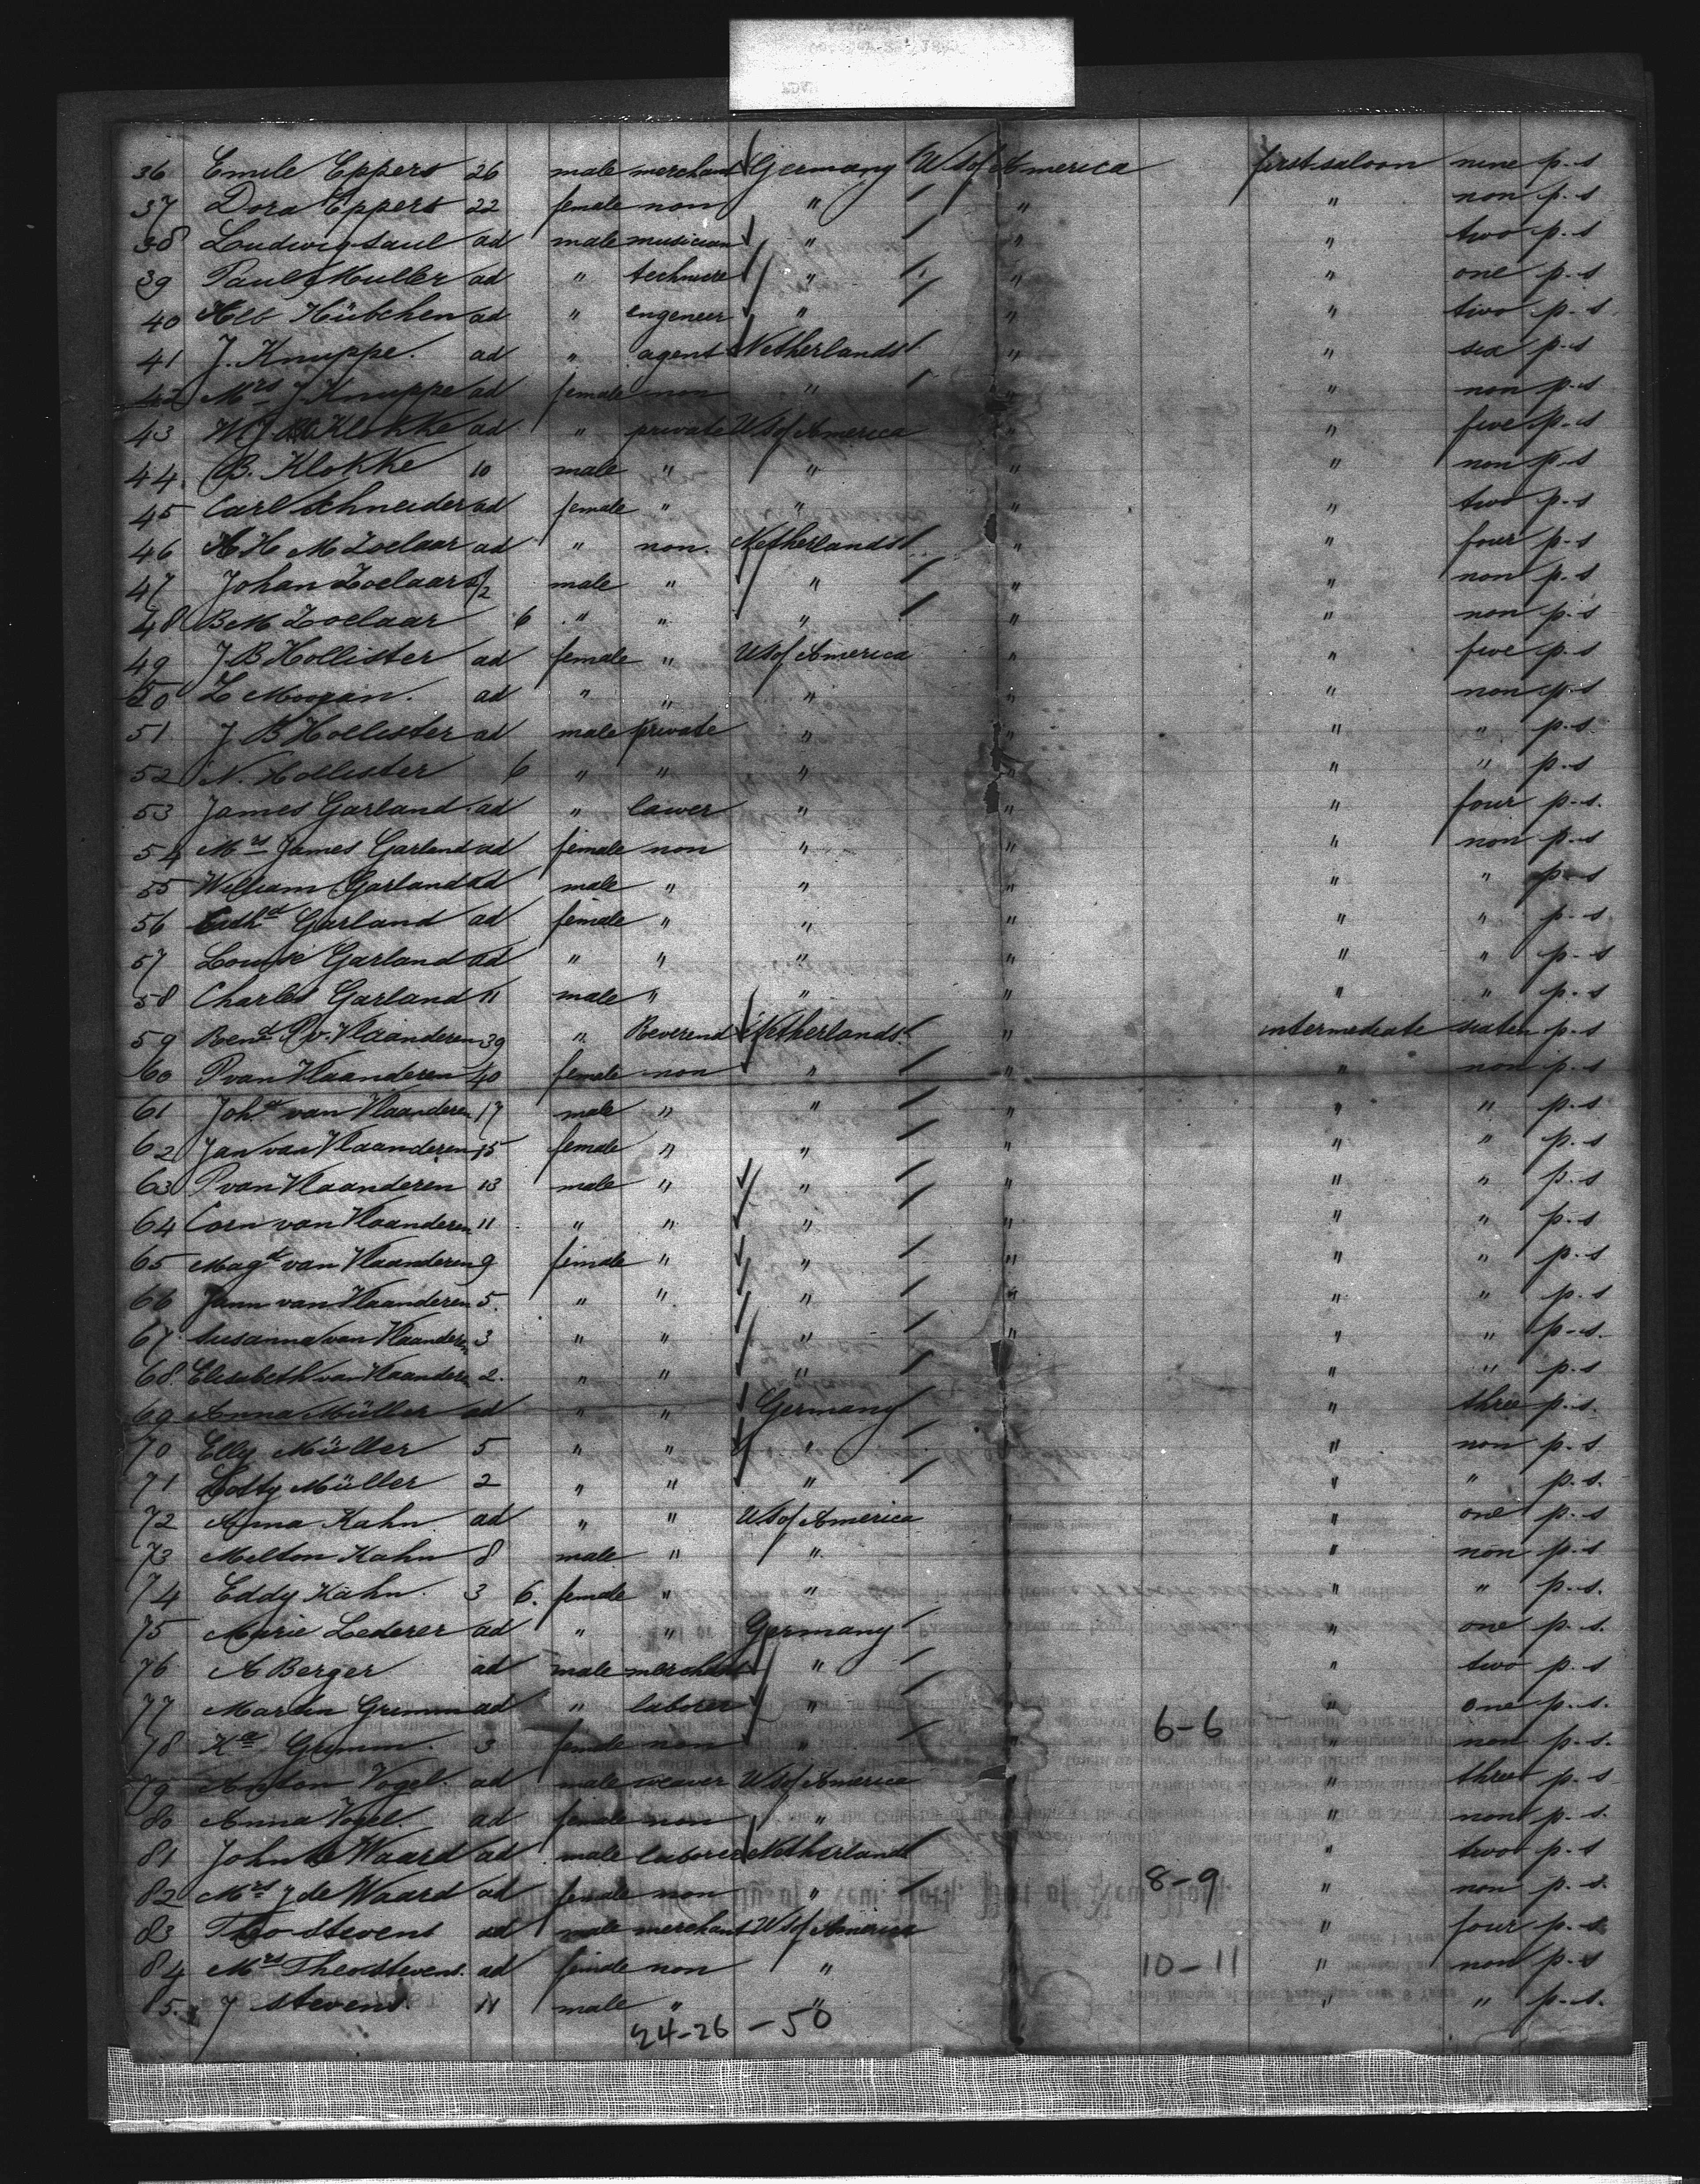 36 Emile Eppers 26 male merchant Germany US of America first saloon nine p.s
37 Dora Eppers 22 female non " " " non p.s
38 Loudwig Saul ad male musician " " " two p.s
39 Paul Muller ad " " " " one p.s
40 Hübchen ad " engeneer " " " two p.s
41 J. Knuppe. ad " agent Netherlands " " six p.s
42 Mrs J Knuppe ad female non " " " non p.s
43 W J Klokke ad " private US of America " " five p.s
44. B. Klokke 10 male " " " " non p.s
45 Carl Schneider ad female " " " " two p.s
46 H M Zoelaar ad " non. Netherlands " " four p.s
47 Johan Zoelaar male " " " " non p.s
48 B M Zoelaar 6 " " " " " non p.s
49 J B Hollister ad female " US of America " " five p.s
50 L Morgan. ad " " " " " non p.s
51 J B Hollister ad male private " " " " p.s
52 N. Hollister 6 " " " " " " p.s
53 James Garland ad " lawer " " " four p.s.
54 Mrs James Garland ad female non " " " non p.s
55 William Garland ad male " " " " " p.s
56 Garland ad female " " " " " p.s
57 Louise Garland ad " " " " " " p.s
58 Charles Garland 11 male " " " " " p.s
59 Revd P. v. Vlaanderen 39 " Reverend Netherlands " intermediate sixteen p.s
60 P van Vlaanderen 40 female non " " " non p.s
61 Joha van Vlaanderen 17 male " " " " " p.s
62 Jan van Vlaanderen 15 female " " " " " p.s
63 P van Vlaanderen 13 male " " " " " p.s
64 Corn van Vlaanderen 11 " " " " " " p.s
65 Magd van Vlaanderen 9 female " " " " " p.s
66 Jann van Vlaanderen 5. " " " " " " p.s
67 Susanna van Vlaanderen 3 " " " " " " p.s.
68. Elisabeth van Vlaanderen 2. " " " " " " p.s
69 Anna Müller ad " " Germany " three p.s.
70 Elly Müller 5 " " " " non p.s
71 Lotty Müller 2 " " " " " p.s.
72 Anna Kahn ad " " US of America " one p.s
73 Milton Kahn 8 male " " " non p.s
74 Eddy Kahn. 3 6. female " " " " p.s.
75 Marie Lederer ad " " Germany " one p.s.
76 A Berger ad male merchant " " two p.s
77 Martin Grimm ad " laborer " " " one p.s.
78 Ka Grimm. 3 female non " " 6-6 " non p.s.
79 Anton Vogel. ad male weaver US of America " three p.s
80 Anna Vogel. ad female non " " non p.s.
81 John de Waard ad male laborer Netherlands " two p.s
82 Mrs J de Waard ad female non " 8-9 " non p.s.
83 Theo Stevens ad male merchant US of America " " four p.s.
84 Mrs Theo Stevens. ad female non " " 10-11 " non p.s
85. J Stevens 11 male " " " " p.s.
24-26-50